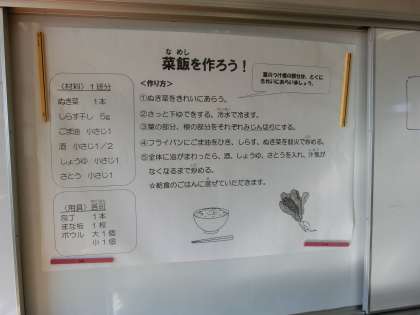 なめし
菜飯を作ろう！
葉のつけ根の部分が、とくに
きれいにあらいましょう。
（材料）１班分
ぬき菜　１本
しらす干し　５g
ごま油　小さじ１
酒　小さじ１／２
しょうゆ　小さじ１
さとう　小さじ１
（用具）各班
包丁　１本
まな板　１枚
ボウル　大１個
小１個
＜作り方＞
①ぬき菜をきれいにあらう。
②さっと下ゆでをする。冷水で冷ます。
③葉の部分、根の部分をそれぞれみじん切りにする。
④フライパンにごま油をひき、しらす、ぬき菜を弱火で炒める。
⑤全体に油がまわったら、酒、しょうゆ、さとうを入れ、汁気が
なくなるまで炒める。
☆給食のごはんに混ぜていただきます。